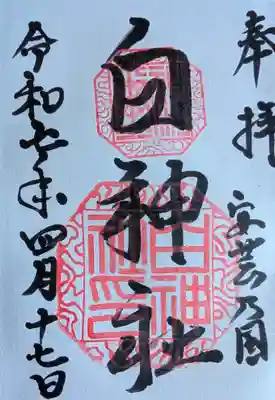 奉拝
安芸乃国
白神社
令和七年四月十七日
白神社印